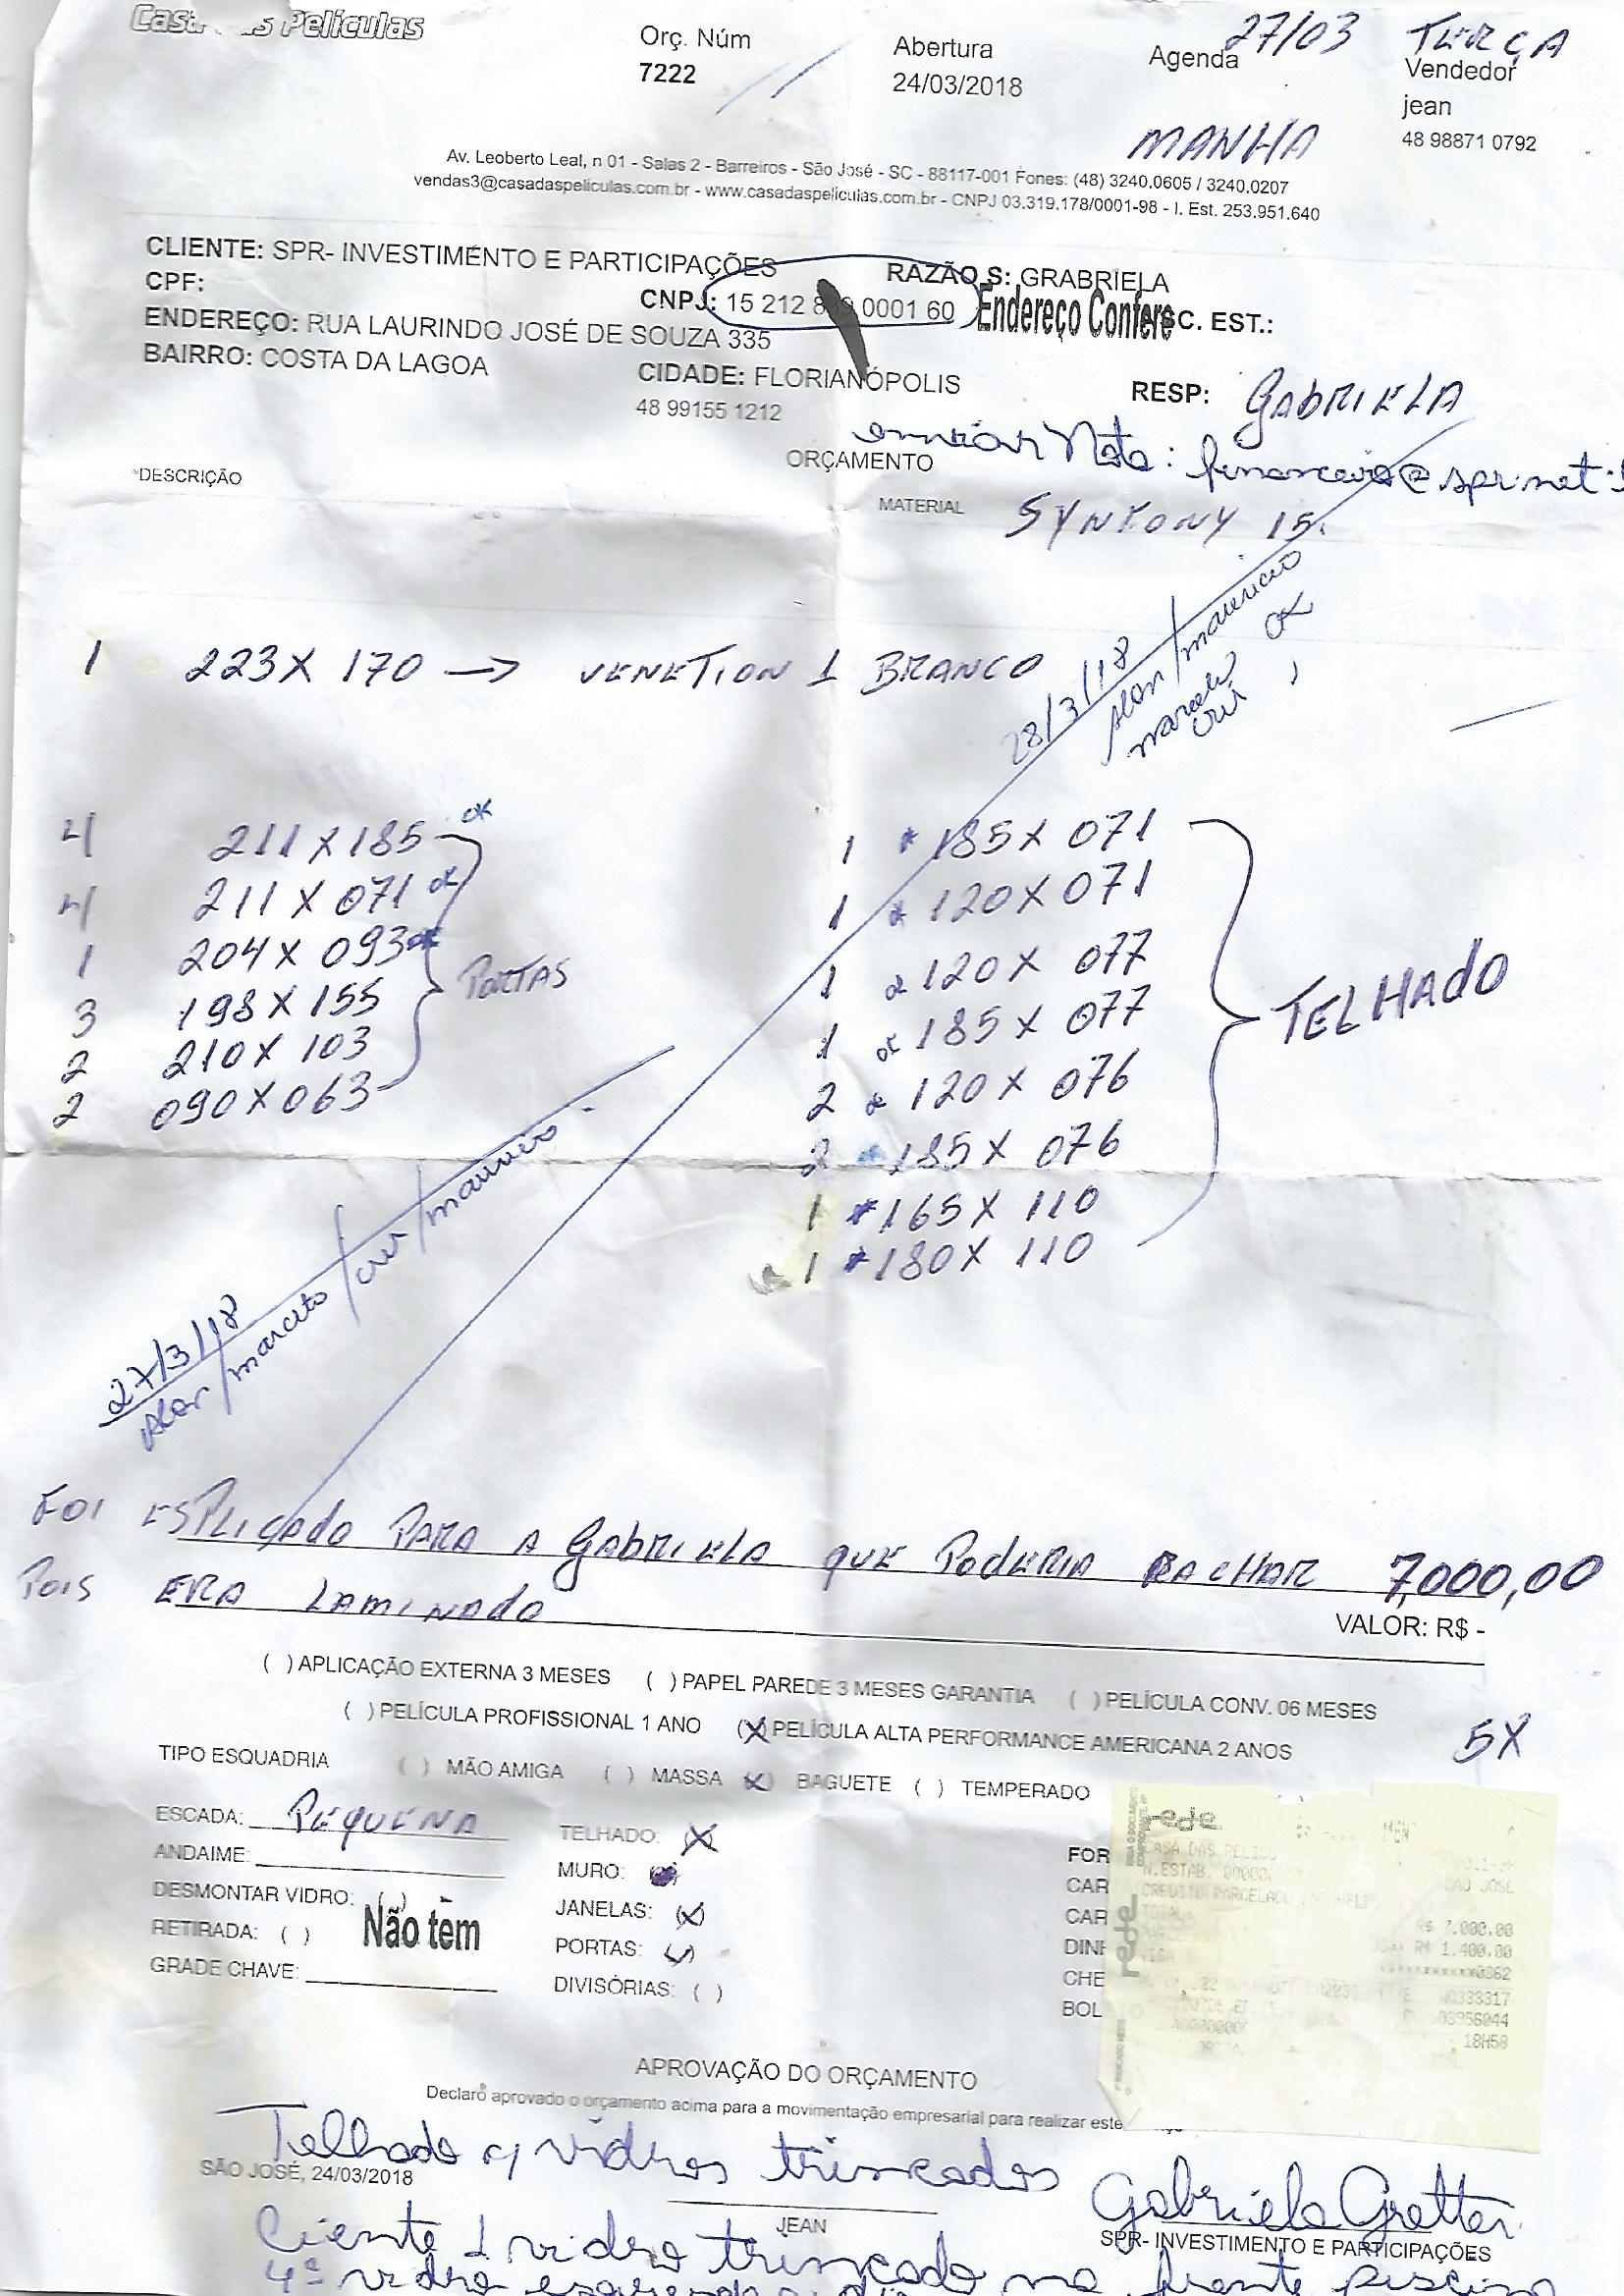 Casa das Películas
Orç. Núm
7222
Abertura
24/03/2018
Agenda
27/03 TERÇA
MANHA
Vendedor
jean
48 98871 0792
Av. Leoberto Leal, n 01 - Salas 2 - Barreiros - São José - SC - 88117-001 Fones: (48) 3240.0605 / 3240.0207
vendas3@casadaspeliculas.com.br - www.casadaspeliculas.com.br - CNPJ 03.319.178/0001-98 - I. Est. 253.951.640
CLIENTE: SPR- INVESTIMENTO E PARTICIPAÇÕES
RAZÃO S: GRABRIELA
CPF:
CNPJ: 15 212 8 0001 60
Endereço Confere
SC. EST.:
ENDEREÇO: RUA LAURINDO JOSÉ DE SOUZA 335
BAIRRO: COSTA DA LAGOA
CIDADE: FLORIANÓPOLIS
RESP: GABRIELA
48 99155 1212
enviar Nota: financeiro@spr.net.
ORÇAMENTO
DESCRIÇÃO
MATERIAL SYNFONY 15.
1 223 X 170 → VENETION 1 BRANCO
28/3/18
Alan / mauricio
marcelo OK
4 211 X 185 ok
4 211 X 071 ok
1 204 X 093 ok
3 198 X 155
2 210 X 103
2 090 X 063
PORTAS
1 185 X 071
1 120 X 071
1 120 X 077
1 ok 185 X 077
2 120 X 076
2 185 X 076
1 165 X 110
1 180 X 110
TELHADO
27/3/18
Alan / marcelo / / mauricio
FOI ESPLICADO PARA A GABRIELA QUE PODERIA RACHAR 7.000,00
POIS ERA LAMINADO
VALOR: R$ -
( ) APLICAÇÃO EXTERNA 3 MESES ( ) PAPEL PAREDE 3 MESES GARANTIA ( ) PELÍCULA CONV. 06 MESES
( ) PELÍCULA PROFISSIONAL 1 ANO (X) PELÍCULA ALTA PERFORMANCE AMERICANA 2 ANOS
5X
TIPO ESQUADRIA ( ) MÃO AMIGA ( ) MASSA (X) BAGUETE ( ) TEMPERADO
ESCADA: PEQUENA
ANDAIME:
DESMONTAR VIDRO: ( )
RETIRADA: ( )
Não tem
GRADE CHAVE:
TELHADO: (X)
MURO:
JANELAS: (X)
PORTAS:
DIVISÓRIAS: ( )
FOR
CAR
CAR
DINH
CHE
BOL
rede
CASA DAS PELICU
N.ESTAB.
CREDITO PARCELADO
SAO JOSE
TOTAL
R$ 7.000.00
R$ 1.400.00
0862
18H58
rede
APROVAÇÃO DO ORÇAMENTO
Declaro aprovado o orçamento acima para a movimentação empresarial para realizar este
Telhado c/ vidros trincados
SÃO JOSÉ, 24/03/2018
Gabriela Gretter
JEAN
SPR- INVESTIMENTO E PARTICIPAÇÕES
Ciente 1 vidro trincado na frente piscina
4º vidro